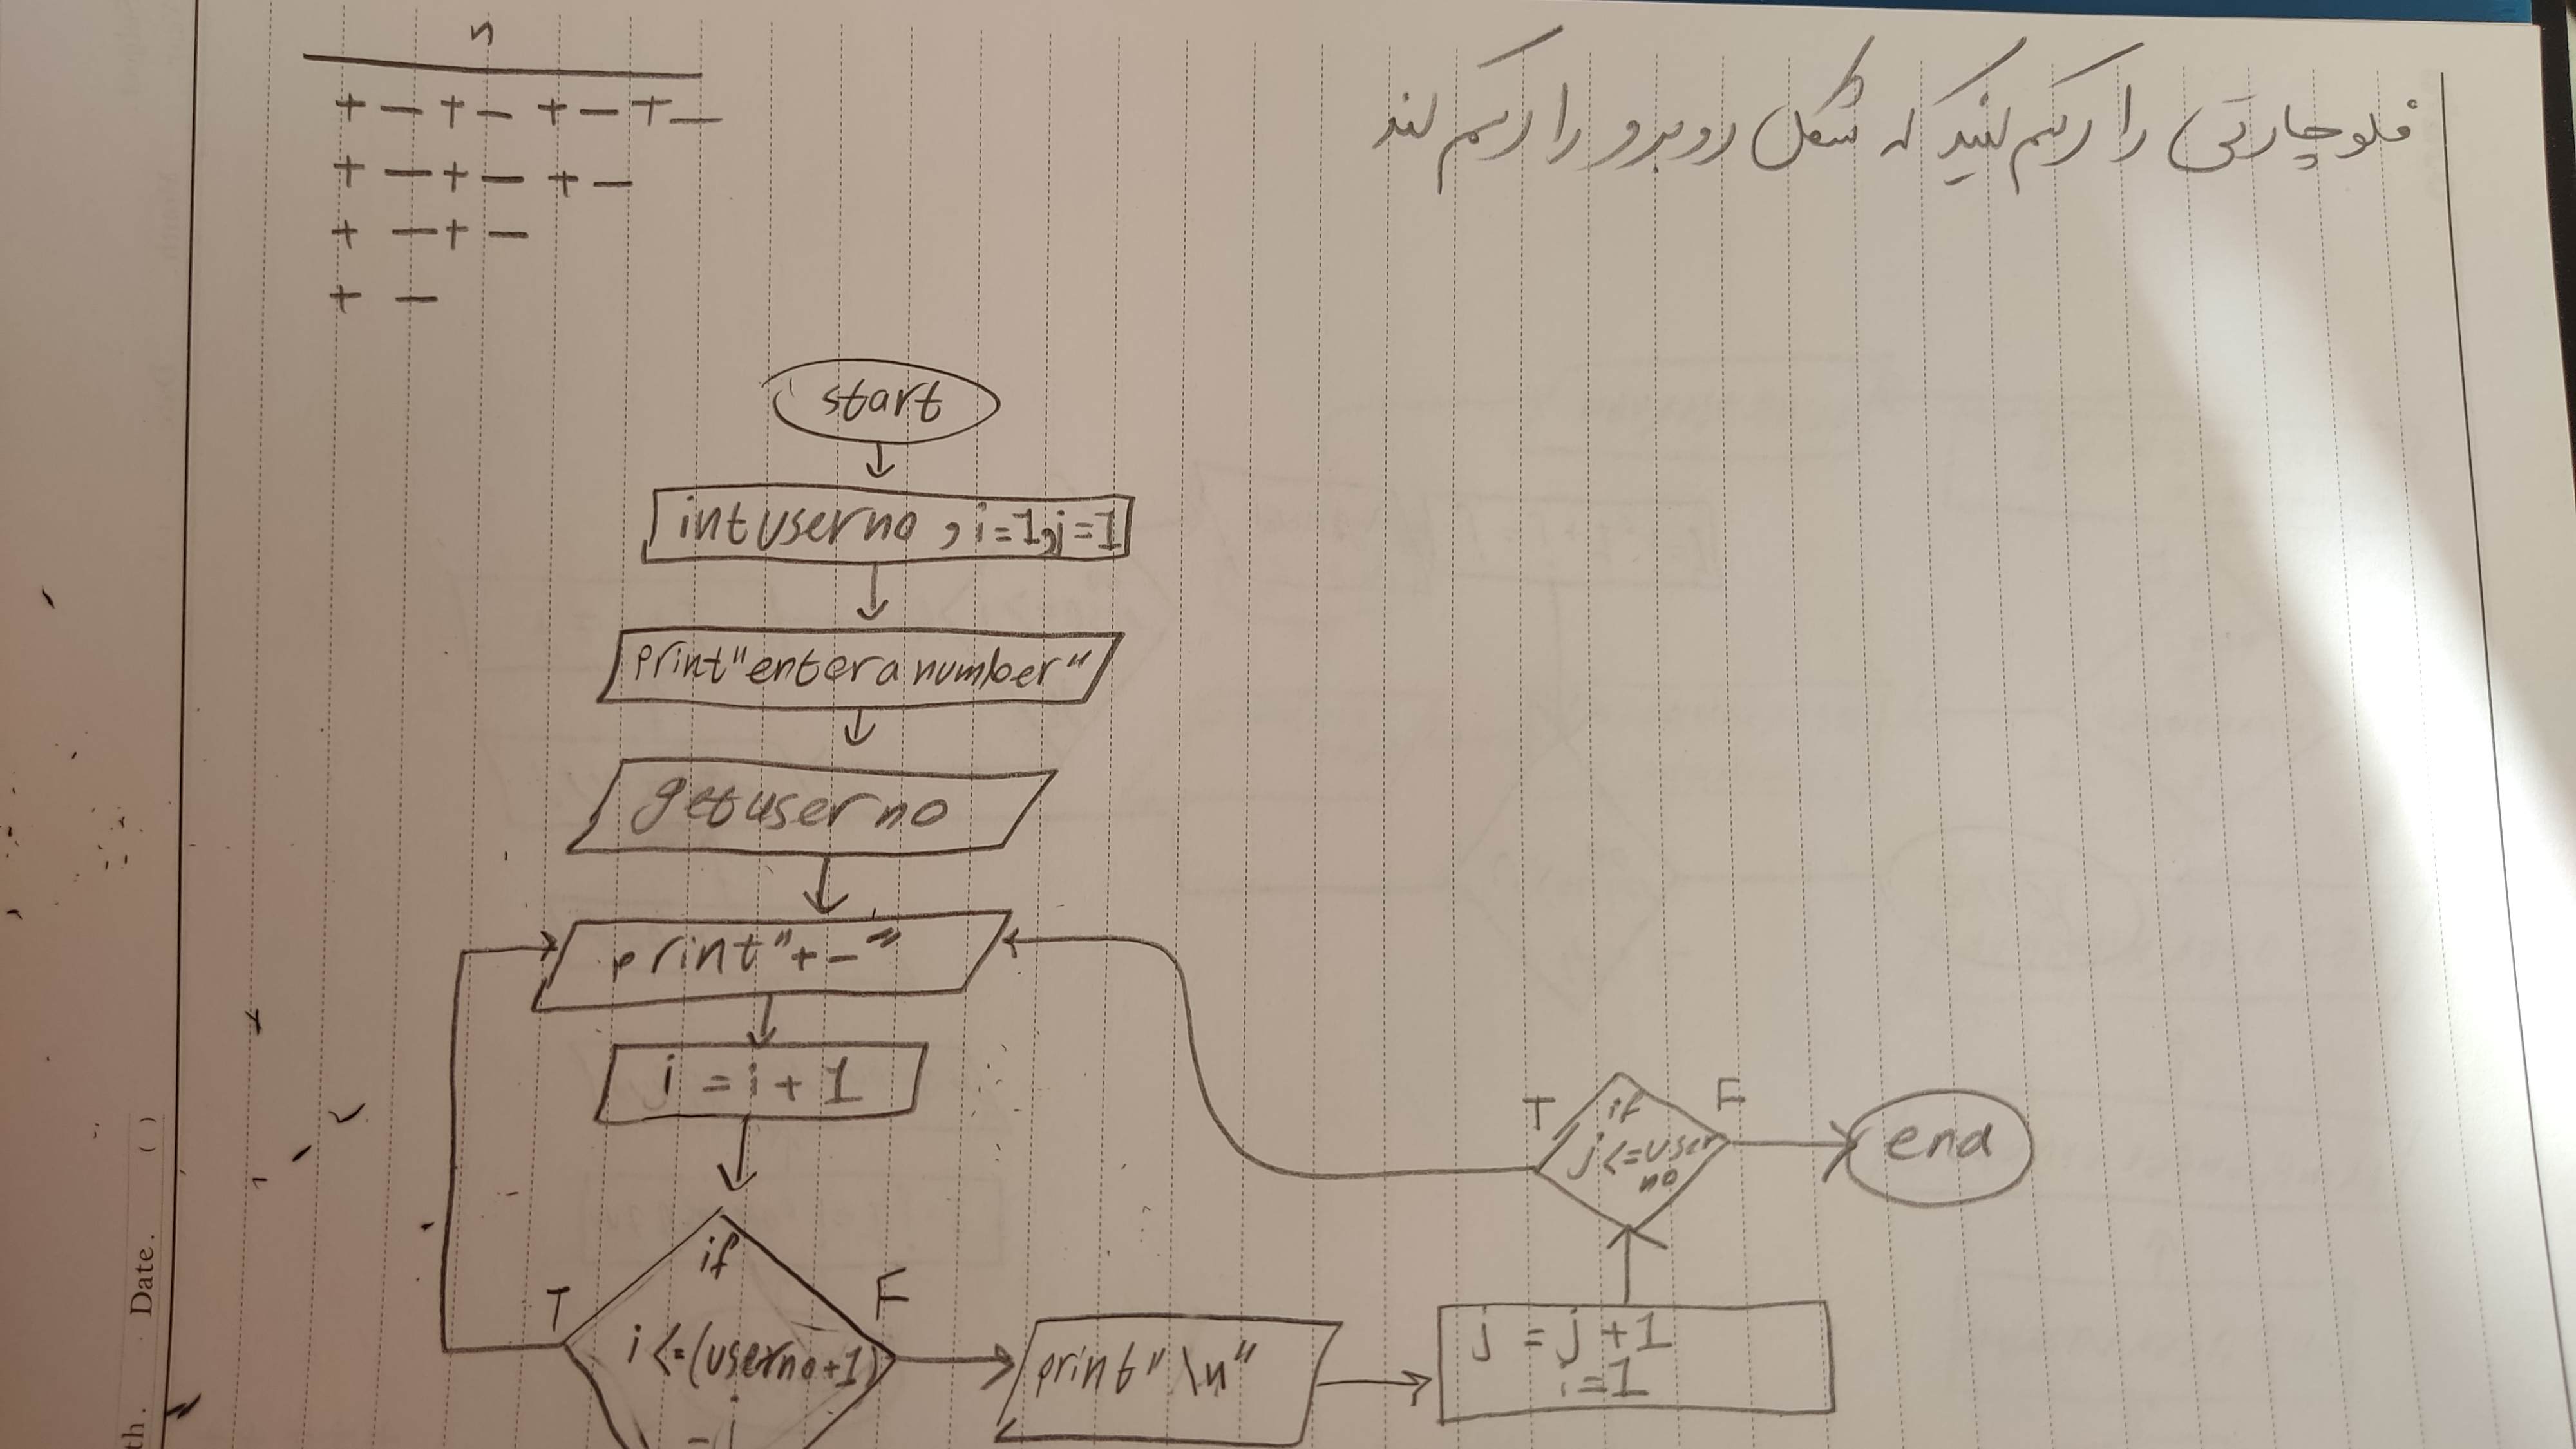 فلوچارتی را رسم کنید که شکل روبرو را رسم کند
n
+ - + - + - + -
+ - + - + -
+ - + -
+ -
start
int userno , i=1,j=1
print"enter a number"
get userno
print"+-"
i = i + 1
if
i <=(userno+1)
-j
T
F
print"\n"
j = j +1
i=1
if
j <=user
no
T
F
end
Date. ( )
th.